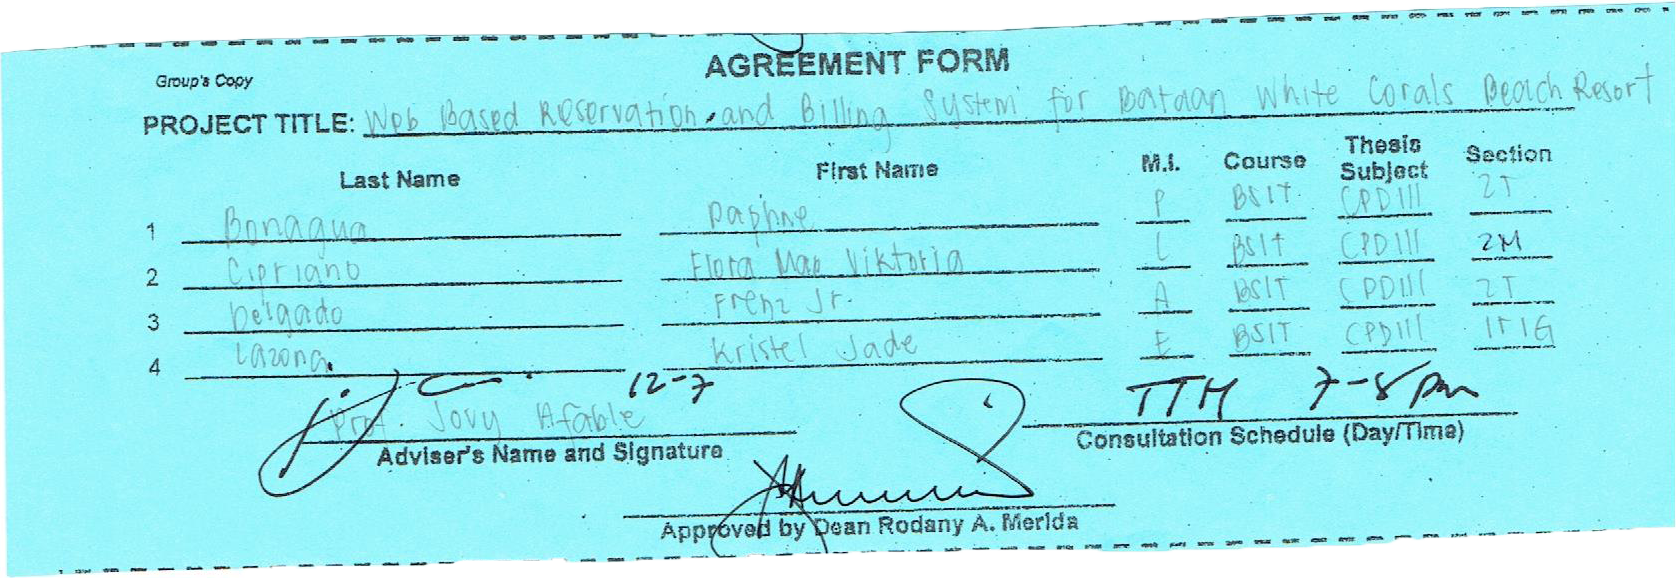 AGREEMENT FORM
Group's Copy
PROJECT TITLE: Web Based Reservation and Billing System for Bataan White Corals Beach Resort
Last Name First Name M.I. Course Thesis Subject Section
1 Bonagua Daphne P BSIT CPDIII 2T
2 Cipriano Flora Mae Viktoria C BSIT CPDIII 2M
3 Delgado Frenz Jr. A BSIT CPDIII 2T
4 Lazona Kristel Jade E BSIT CPDIII
12-7 TTH 7-8 pm
Prof. Jovy Afable
Adviser's Name and Signature Consultation Schedule (Day/Time)
Approved by Dean Rodany A. Merida